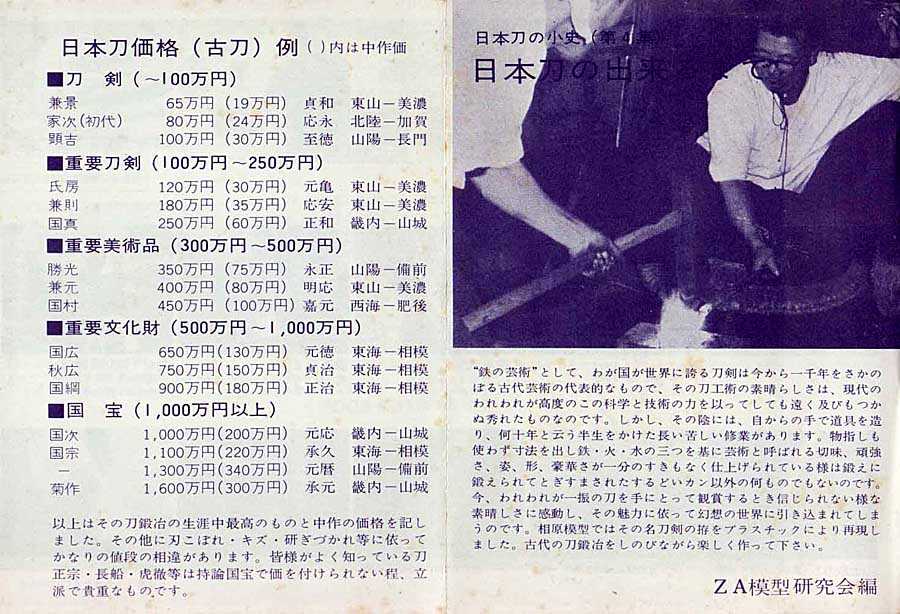 日本刀価格（古刀）例（ ）内は中作価
■刀　剣（～100万円）
兼景　65万円（19万円）　貞和　東山－美濃
家次（初代）　80万円（24万円）　応永　北陸－加賀
顕吉　100万円（30万円）　至徳　山陽－長門
■重要刀剣（100万円～250万円）
氏房　120万円（30万円）　元亀　東山－美濃
兼則　180万円（35万円）　応安　東山－美濃
国真　250万円（60万円）　正和　畿内－山城
■重要美術品（300万円～500万円）
勝光　350万円（75万円）　永正　山陽－備前
兼元　400万円（80万円）　明応　東山－美濃
国村　450万円（100万円）　嘉元　西海－肥後
■重要文化財（500万円～1,000万円）
国広　650万円（130万円）　元徳　東海－相模
秋広　750万円（150万円）　貞治　東海－相模
国綱　900万円（180万円）　正治　東海－相模
■国　宝（1,000万円以上）
国次　1,000万円（200万円）　元応　畿内－山城
国宗　1,100万円（220万円）　承久　東海－相模
－　1,300万円（340万円）　元暦　山陽－備前
菊作　1,600万円（300万円）　承元　畿内－山城
以上はその刀鍛冶の生涯中最高のものと中作の価格を記し
ました。その他に刃こぼれ・キズ・研ぎづかれ等に依って
かなりの値段の相違があります。皆様がよく知っている刀
正宗・長船・虎徹等は持論国宝で価を付けられない程、立
派で貴重なものです。
日本刀の小史（第4集）
日本刀の出来るまで
“鉄の芸術”として、わが国が世界に誇る刀剣は今から一千年をさかの
ぼる古代芸術の代表的なもので、その刀工術の素晴らしさは、現代の
われわれが高度のこの科学と技術の力を以ってしても遠く及びもつか
ぬ秀れたものなのです。しかし、その陰には、自からの手で道具を造
り、何十年と云う半生をかけた長い苦しい修業があります。物指しも
使わず寸法を出し鉄・火・水の三つを基に芸術と呼ばれる切味、頑強
さ、姿、形、豪華さが一分のすきもなく仕上げられている様は鍛えに
鍛えられてとぎすまされたするどいカン以外の何ものでもないのです。
今、われわれが一振の刀を手にとって観賞するとき信じられない様な
素晴しさに感動し、その魅力に依って幻想の世界に引き込まれてしま
うのです。相原模型ではその名刀剣の拵をプラスチックにより再現し
ました。古代の刀鍛冶をしのびながら楽しく作って下さい。
ＺＡ模型研究会編